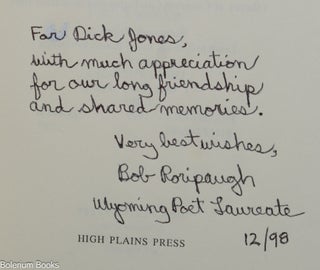 For Dick Jones,
with much appreciation
for our long friendship
and shared memories.
Very best wishes,
Bob Roripaugh
Wyoming Poet Laureate
HIGH PLAINS PRESS 12/98
Bolerium Books